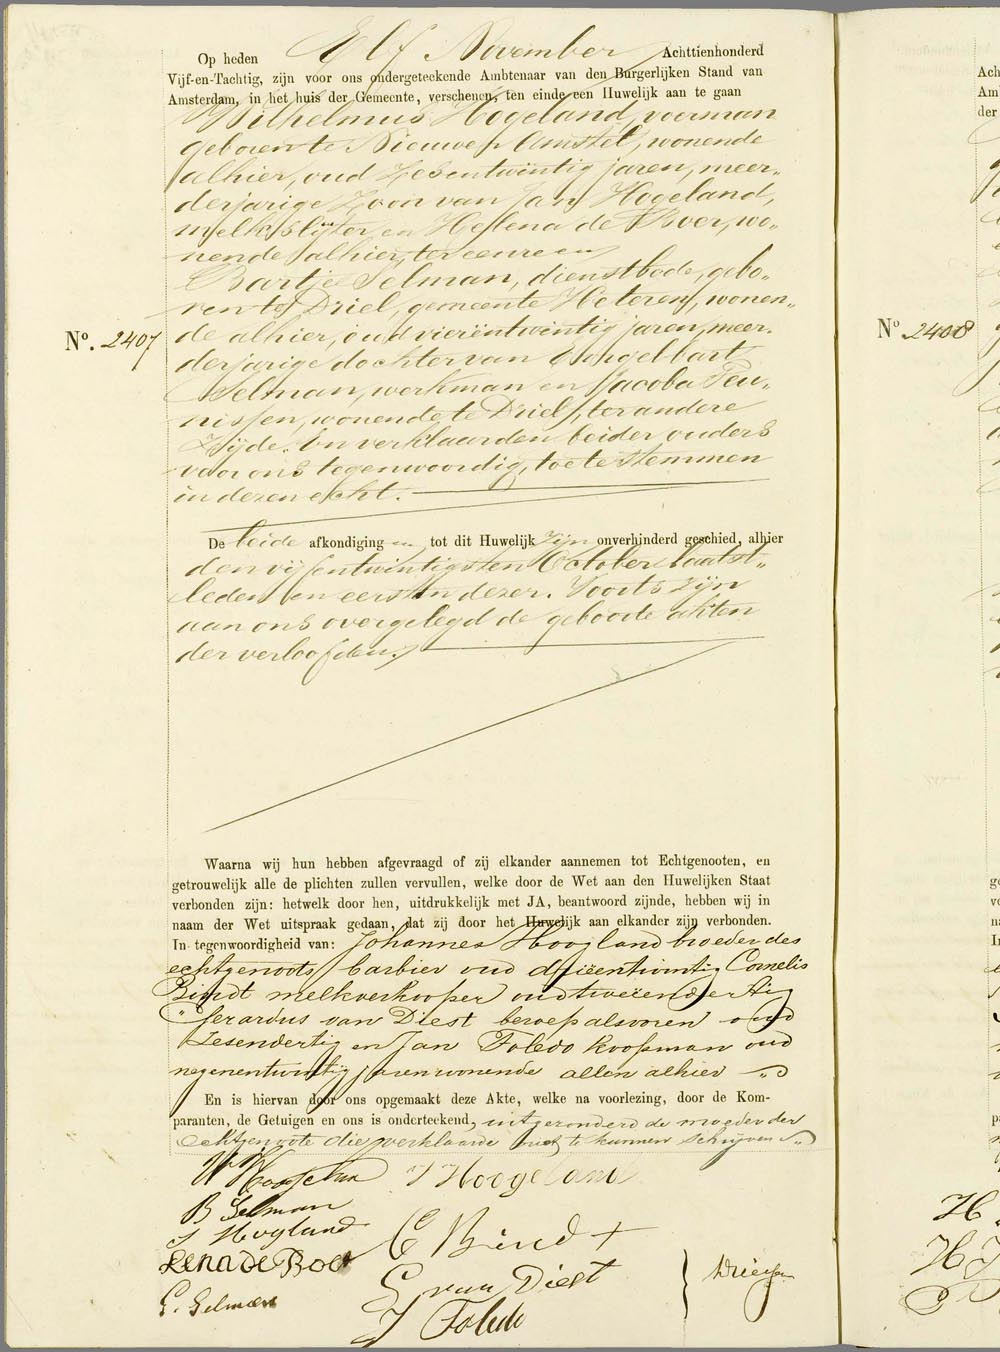 Op heden Elf November Achttienhonderd
Vijf-en-Tachtig, zijn voor ons ondergeteekende Ambtenaar van den Burgerlijken Stand van
Amsterdam, in het huis der Gemeente, verschenen, ten einde een Huwelijk aan te gaan
Wilhelmus Hogeland, voerman
geboren te Nieuwer Amstel, wonende
alhier, oud Zesentwintig jaren, meer„
derjarige Zoon van Jan Hogeland,
melkslijter, en Helena de Boer, wo„
nende alhier, ter eenre en
Bartje Selman, dienstbode, gebo„
ren te Driel, gemeente Heteren, wonen„
No. 2407 de alhier, oud vierëntwintig jaren, meer„
derjarige dochter van Engelbart
Selman, werkman en Jacoba Teu„
nissen, wonende te Driel, ter andere
Zijde. En verklaarden beider ouders
voor ons tegenwoordig, toe te stemmen
in dezen echt.
De beide afkondiging en tot dit Huwelijk zijn onverhinderd geschied, alhier
den vijfentwintigsten October laatst„
leden en eersten dezer. Voorts zijn
aan ons overgelegd de geboorte akten
der verloofden.
Waarna wij hun hebben afgevraagd of zij elkander aannemen tot Echtgenooten, en
getrouwelijk alle de plichten zullen vervullen, welke door de Wet aan den Huwelijken Staat
verbonden zijn: hetwelk door hen, uitdrukkelijk met JA, beantwoord zijnde, hebben wij in
naam der Wet uitspraak gedaan, dat zij door het Huwelijk aan elkander zijn verbonden.
In tegenwoordigheid van: Johannes Hoogland broeder des
echtgenoots, barbier oud drieëentwintig Cornelis
Bindt melkverkooper oud tweeendertig
Gerardus van Diest beroep alsvoren oud
Zesendertig en Jan Toledo koopman oud
negenentwintig jaren wonende allen alhier
En is hiervan door ons opgemaakt deze Akte, welke na voorlezing, door de Kom-
paranten, de Getuigen en ons is onderteekend, uitgezonderd de moeder der
echtgenoote die verklaarde niet te kunnen schrijven
J Hoogeland
B Selman
J Hoogland
C Bindt
Lena De Boer
G van Diest
E. Selman
J Toledo
No 2408